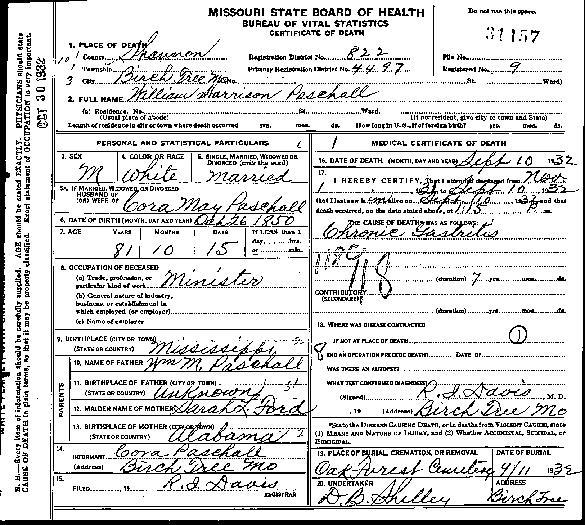 MISSOURI STATE BOARD OF HEALTH
BUREAU OF VITAL STATISTICS
CERTIFICATE OF DEATH
Do not use this space.
31157
1. PLACE OF DEATH
County Shannon Registration District No. 822 File No.
Township Primary Registration District No. 4497 Registered No. 9
City Birch Tree Mo No. St. Ward)
2. FULL NAME William Harrison Paschall
(a) Residence, No. St. Ward.
(Usual place of abode) (If nonresident, give city or town and State)
Length of residence in city or town where death occurred yrs. mos. ds. How long in U.S., if of foreign birth? yrs. mos. ds.
PERSONAL AND STATISTICAL PARTICULARS
3. SEX
M
4. COLOR OR RACE
White
5. SINGLE, MARRIED, WIDOWED OR DIVORCED (write the word)
Married
5A. IF MARRIED, WIDOWED, OR DIVORCED
HUSBAND OF
(OR) WIFE OF Cora May Paschall
6. DATE OF BIRTH (MONTH, DAY AND YEAR) Oct 26 1850
7. AGE YEARS MONTHS DAYS If LESS than 1
day, hrs.
or min.
81 10 15
8. OCCUPATION OF DECEASED
(a) Trade, profession, or
particular kind of work Minister
(b) General nature of industry,
business, or establishment in
which employed (or employer)
(c) Name of employer
9. BIRTHPLACE (CITY OR TOWN)
(STATE OR COUNTRY) Mississippi
PARENTS
10. NAME OF FATHER Wm M. Paschall
11. BIRTHPLACE OF FATHER (CITY OR TOWN)
(STATE OR COUNTRY) Unknown
12. MAIDEN NAME OF MOTHER Sarah L. Ford
13. BIRTHPLACE OF MOTHER (CITY OR TOWN)
(STATE OR COUNTRY) Alabama
14.
INFORMANT Cora Paschall
(Address) Birch Tree Mo
15.
FILED , 19 R. I. Davis
REGISTRAR
MEDICAL CERTIFICATE OF DEATH
16. DATE OF DEATH (MONTH, DAY AND YEAR) Sept 10 1932
17.
I HEREBY CERTIFY, That I attended deceased from Nov.
to Sept 10, 1932
that I last saw h alive on Sept 10 1932, and that
death occurred, on the date stated above, at 1:15 P. m.
THE CAUSE OF DEATH WAS AS FOLLOWS:
Chronic Gastritis
118
(duration) 7 yrs. mos. ds.
CONTRIBUTORY
(SECONDARY)
(duration) yrs. mos. ds.
18. WHERE WAS DISEASE CONTRACTED
IF NOT AT PLACE OF DEATH?
1
DID AN OPERATION PRECEDE DEATH? DATE OF
WAS THERE AN AUTOPSY?
WHAT TEST CONFIRMED DIAGNOSIS?
(Signed) R. I. Davis M. D.
, 19 (Address) Birch Tree Mo
*State the DISEASE CAUSING DEATH, or in deaths from VIOLENT CAUSES, state
(1) MEANS AND NATURE OF INJURY, and (2) Whether ACCIDENTAL, SUICIDAL, or
HOMICIDAL.
19. PLACE OF BURIAL, CREMATION, OR REMOVAL DATE OF BURIAL
Oak Forrest Cemetery 9/11 1932
20. UNDERTAKER ADDRESS
D. B. Shelley Birch Tree
OCT 30 1932
N. B.—Every item of information should be carefully supplied. AGE should be stated EXACTLY. PHYSICIANS should state
CAUSE OF DEATH in plain terms, so that it may be properly classified. Exact statement of OCCUPATION is very important.